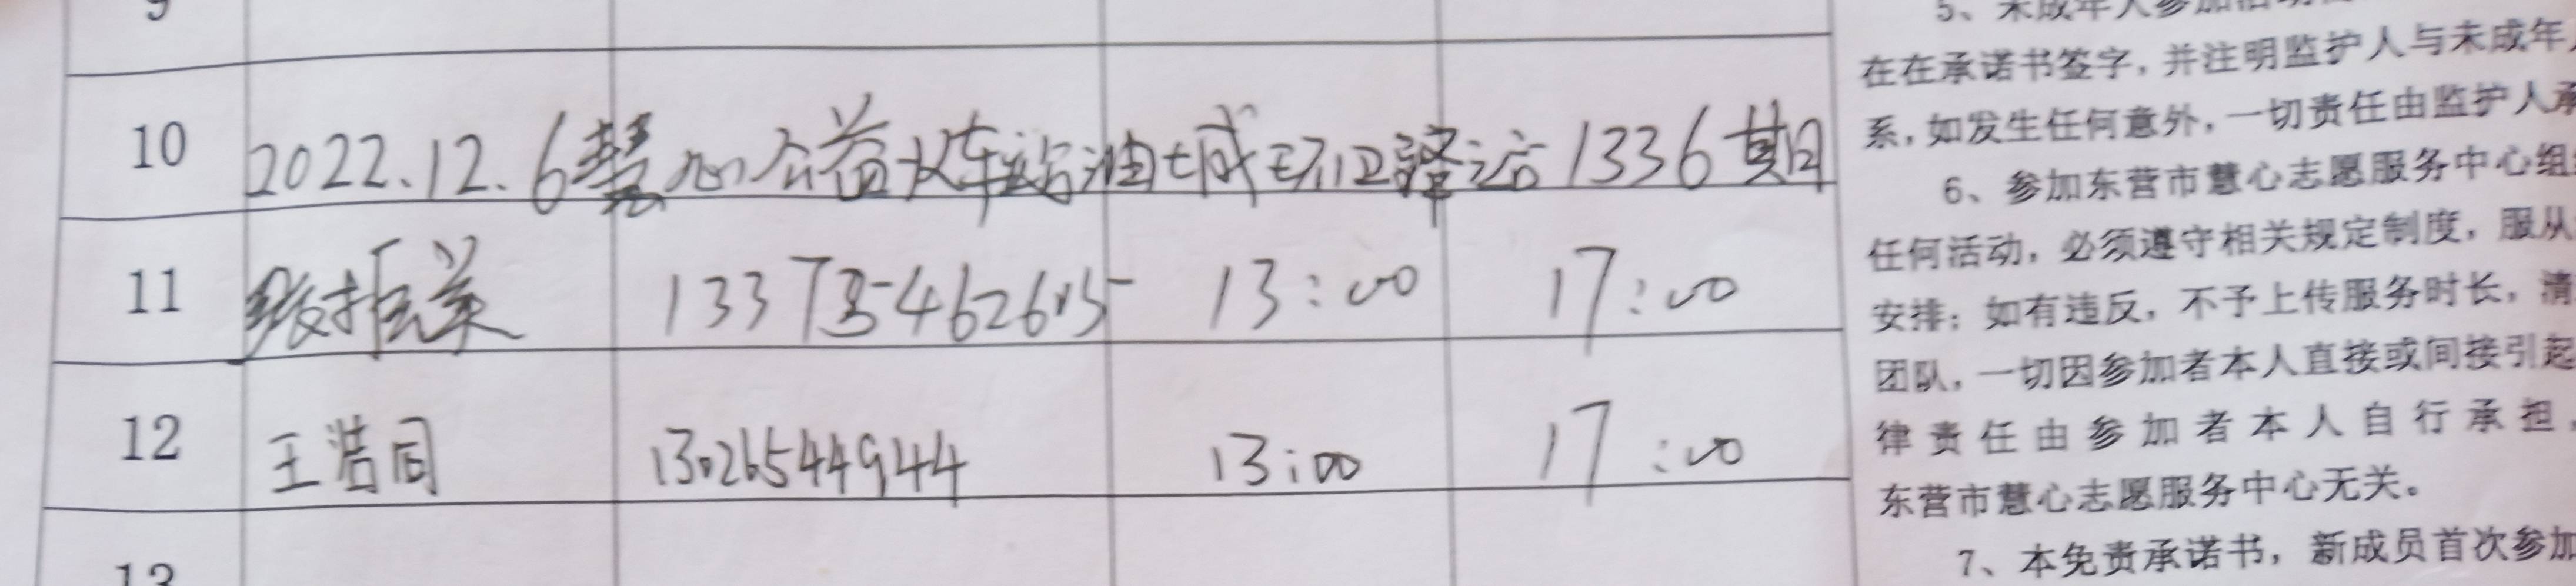 9
10 2022.12.6慧心公益火车站油城环卫驿站1336期
11 张振美 13375462615 13:00 17:00
12 王浩同 13026544944 13:00 17:00
13
5、未成年人参加活动
在在承诺书签字，并注明监护人与未成年
系，如发生任何意外，一切责任由监护人承
6、参加东营市慧心志愿服务中心组
任何活动，必须遵守相关规定制度，服从
安排；如有违反，不予上传服务时长，清
团队，一切因参加者本人直接或间接引起
律责任由参加者本人自行承担，
东营市慧心志愿服务中心无关。
7、本免责承诺书，新成员首次参加